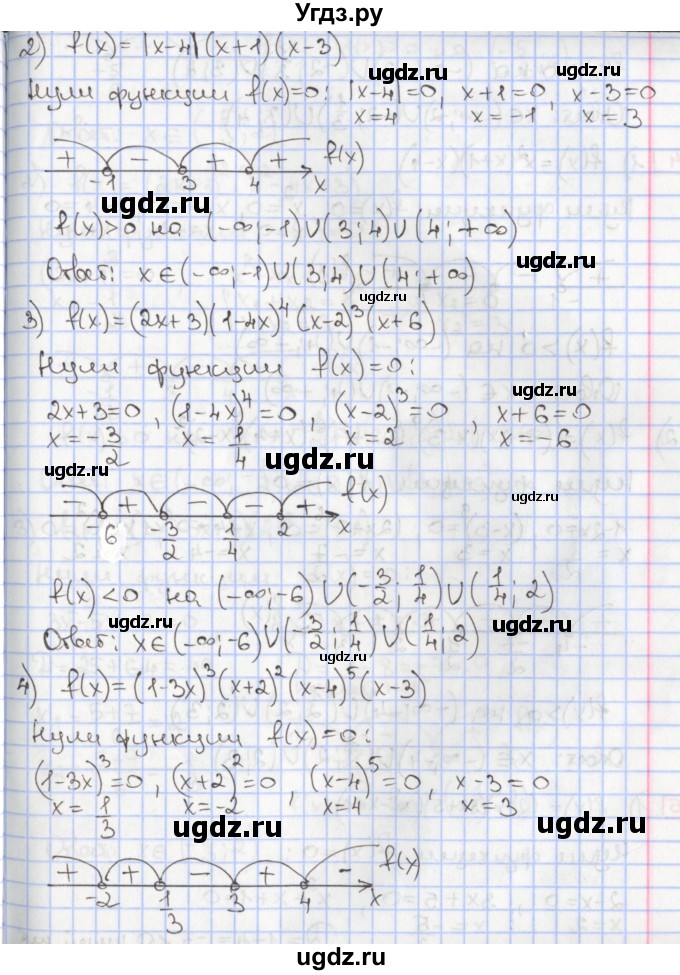 Угдз.ру
2) f(x)=|x-4|(x+1)(x-3)
Нули функции f(x)=0: |x-4|=0, x+1=0, x-3=0
x=4 x=-1 x=3
+ - + + f(x)
-1 3 4 x
ugdz.ru ugdz.ru
f(x)>0 на (-∞;-1)∪(3;4)∪(4;+∞)
Ответ: x∈(-∞;-1)∪(3;4)∪(4;+∞)
ugdz.ru
3) f(x)=(2x+3)(1-4x)⁴(x-2)³(x+6)
ugdz.ru
Нули функции f(x)=0:
2x+3=0, (1-4x)⁴=0, (x-2)³=0, x+6=0
x=-3/2 x=1/4 x=2 x=-6
ugdz.ru ugdz.ru
- + - - + f(x)
-6 -3/2 1/4 2 x
ugdz.ru
ugdz.ru
f(x)<0 на (-∞;-6)∪(-3/2;1/4)∪(1/4;2)
Ответ: x∈(-∞;-6)∪(-3/2;1/4)∪(1/4;2)
ugdz.ru ugdz.ru
4) f(x)=(1-3x)³(x+2)²(x-4)⁵(x-3)
Нули функции f(x)=0:
(1-3x)³=0, (x+2)²=0, (x-4)⁵=0, x-3=0
x=1/3 x=-2 x=4 x=3
ugdz.ru ugdz.ru
+ + - + - f(x)
-2 1/3 3 4 x
ugdz.ru
ugdz.ru